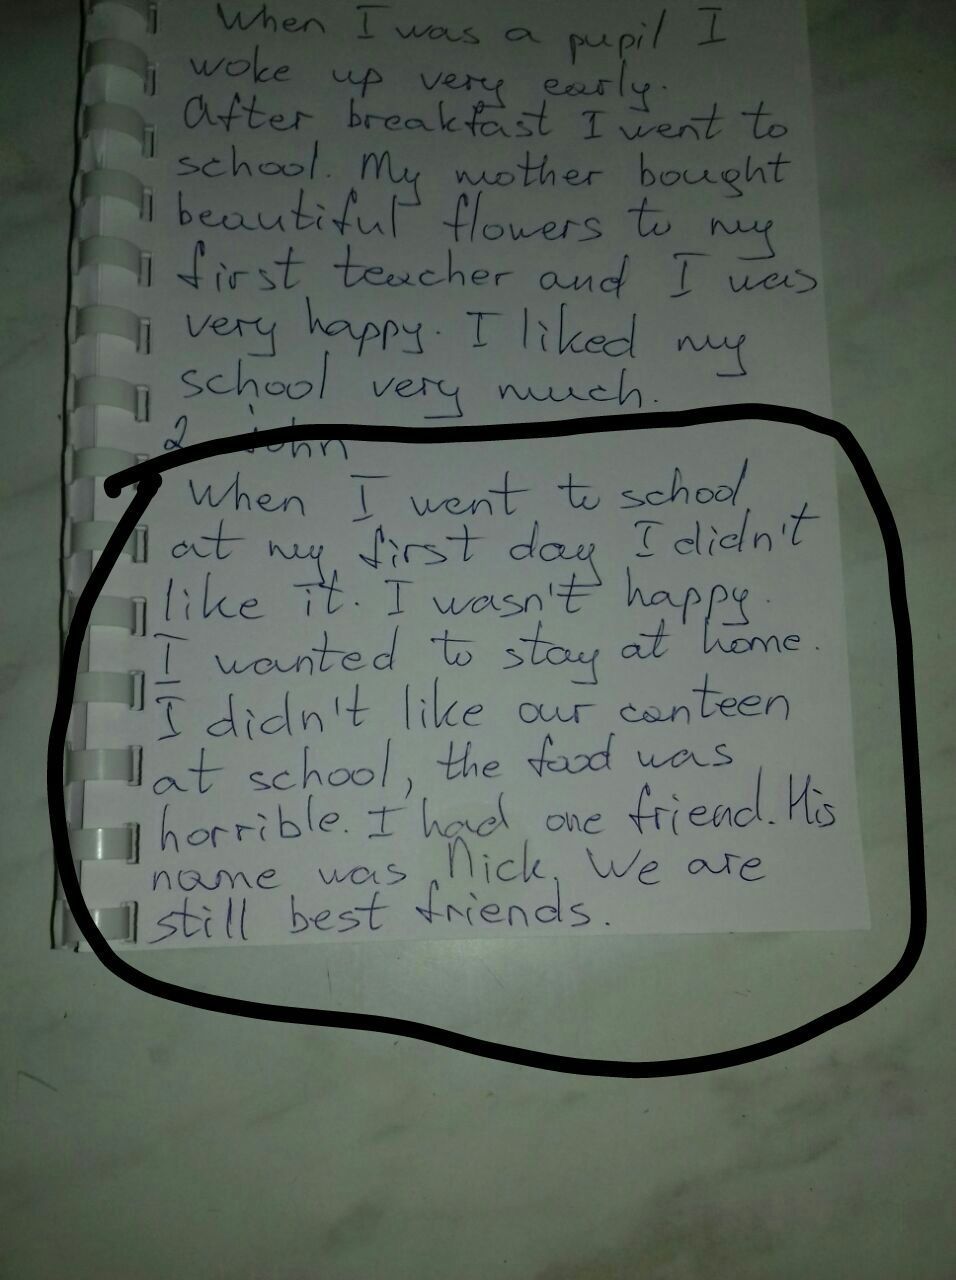 When I was a pupil I
woke up very early.
After breakfast I went to
school. My mother bought
beautiful flowers to my
first teacher and I was
very happy. I liked my
school very much.
2 john
When I went to school
at my first day I didn't
like it. I wasn't happy.
I wanted to stay at home.
I didn't like our canteen
at school, the food was
horrible. I had one friend. His
name was Nick. We are
still best friends.